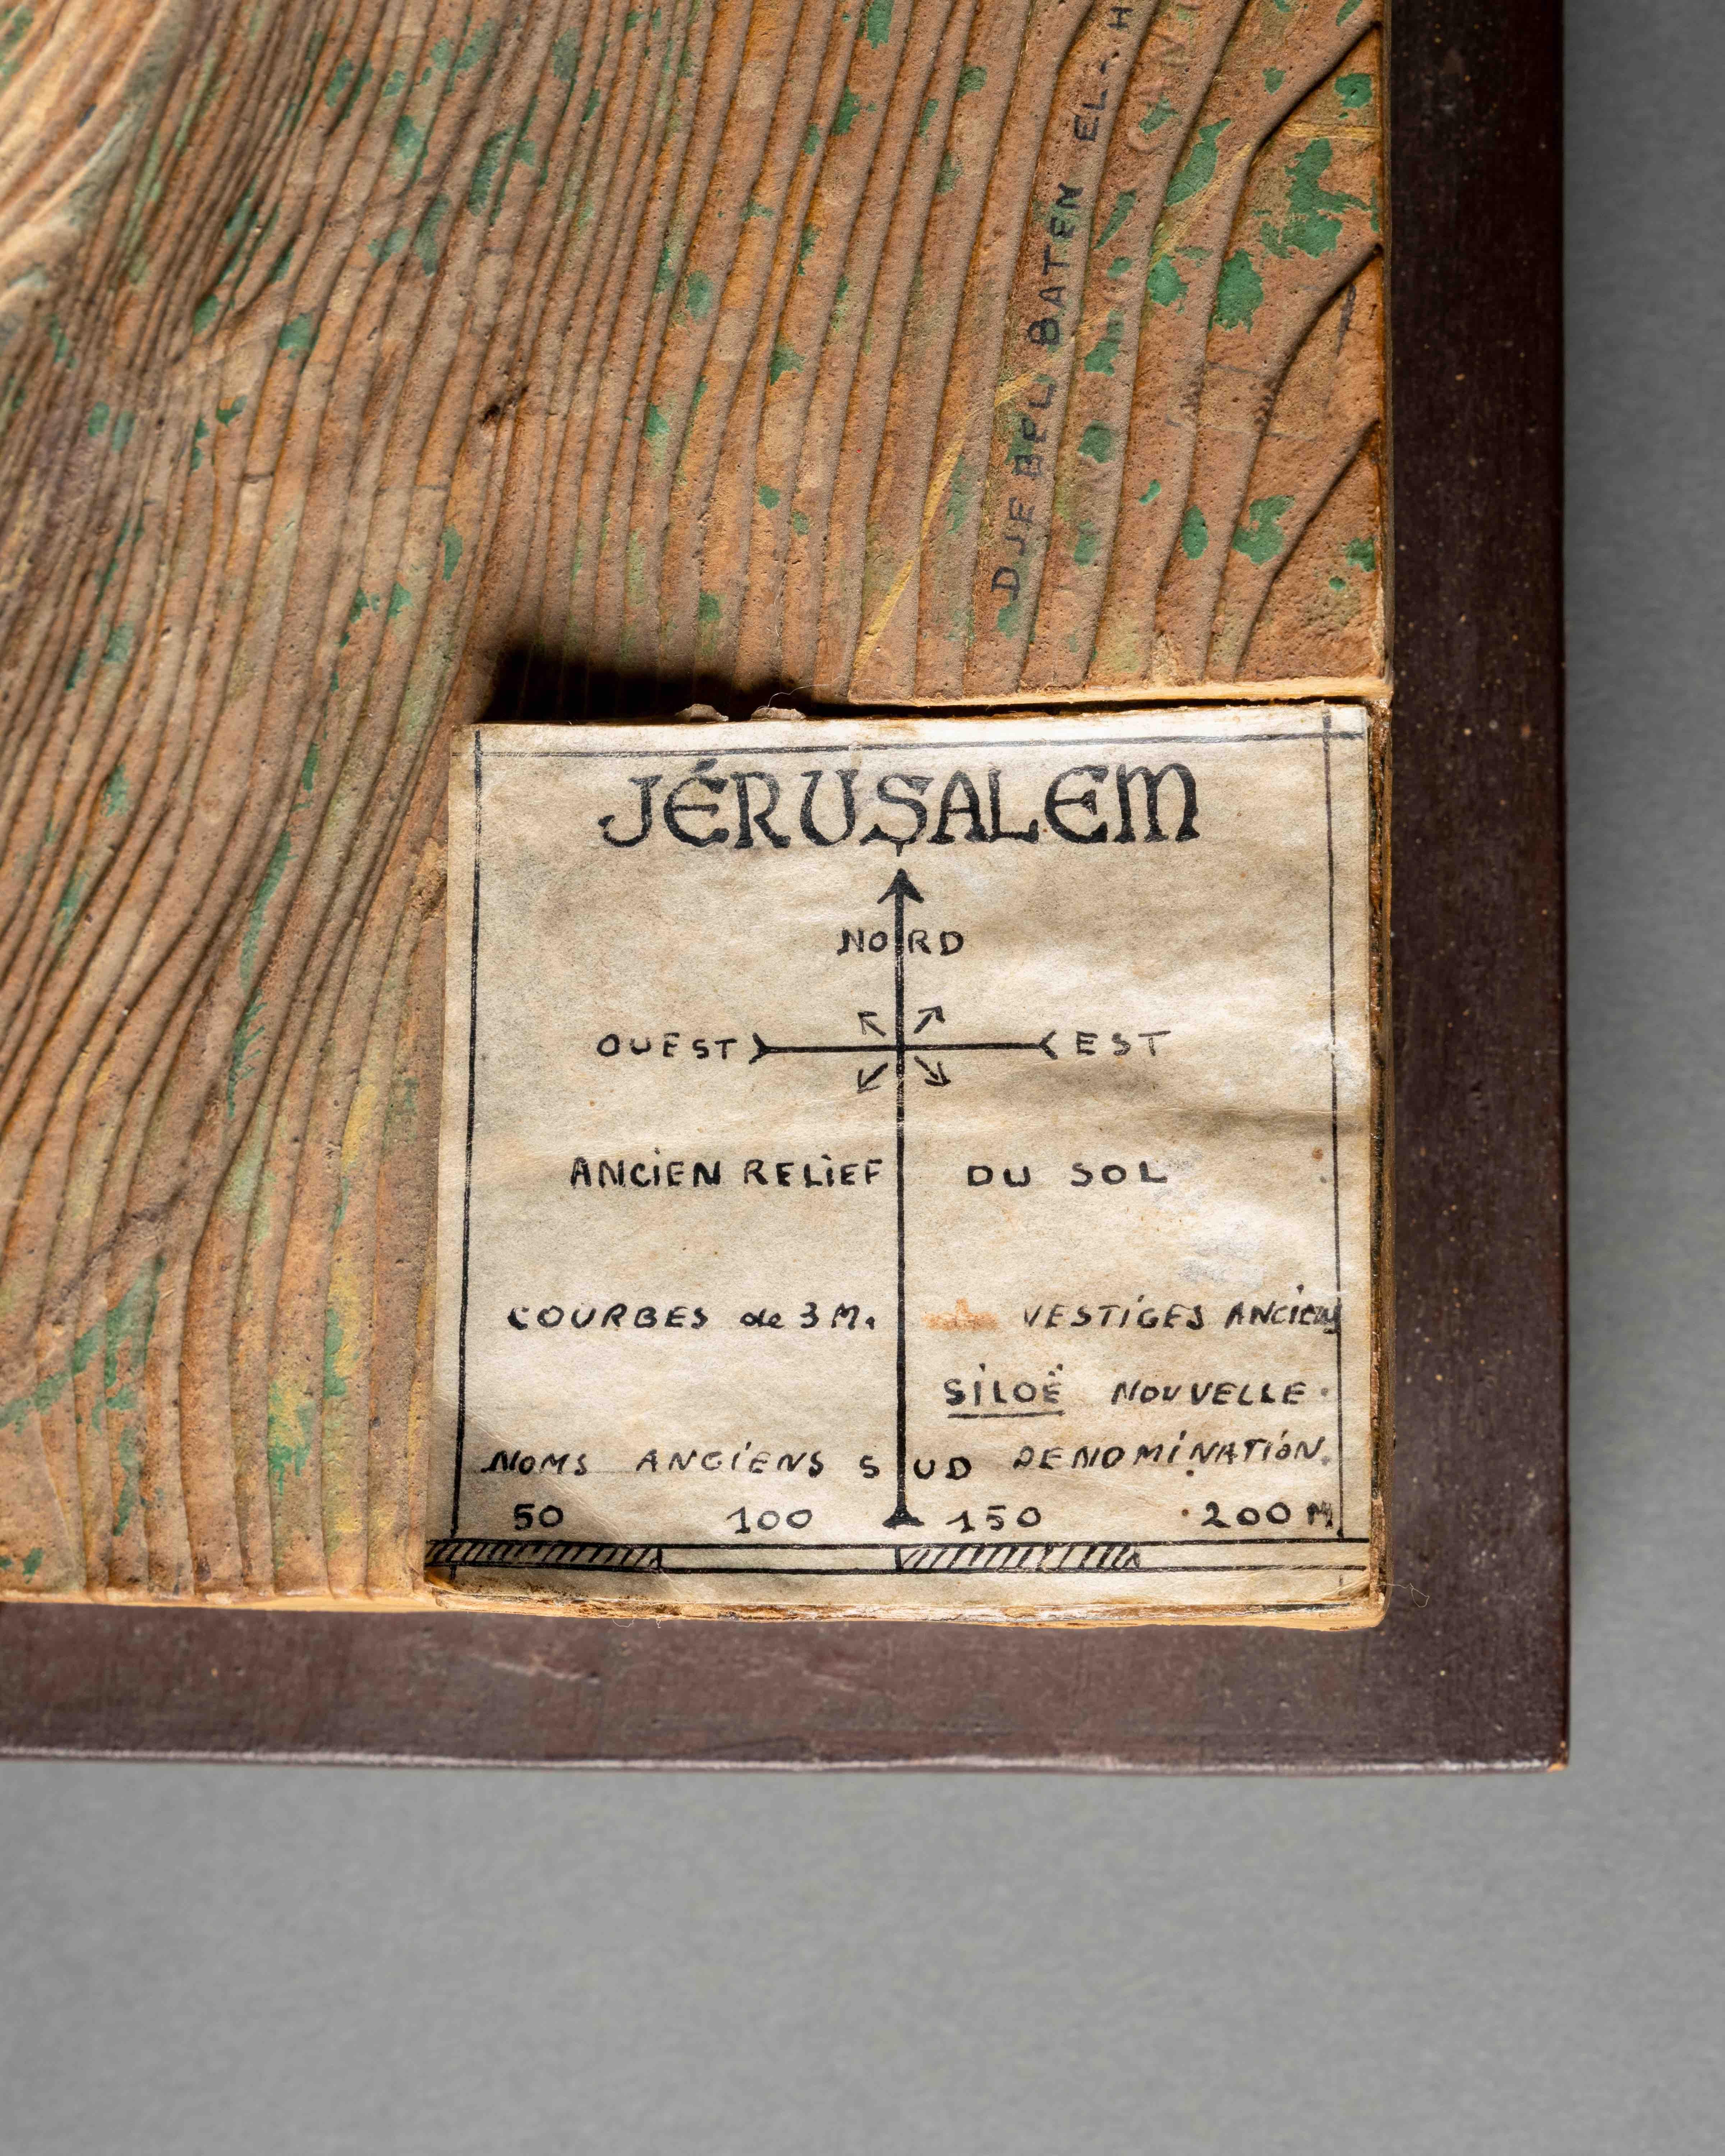 DJEBEL BATEN EL-H
JÉRUSALEM
NORD
OUEST EST
ANCIEN RELIEF DU SOL
COURBES de 3 M. VESTIGES ANCIENS
SILOË NOUVELLE
NOMS ANCIENS SUD DENOMINATION.
50 100 150 200 M